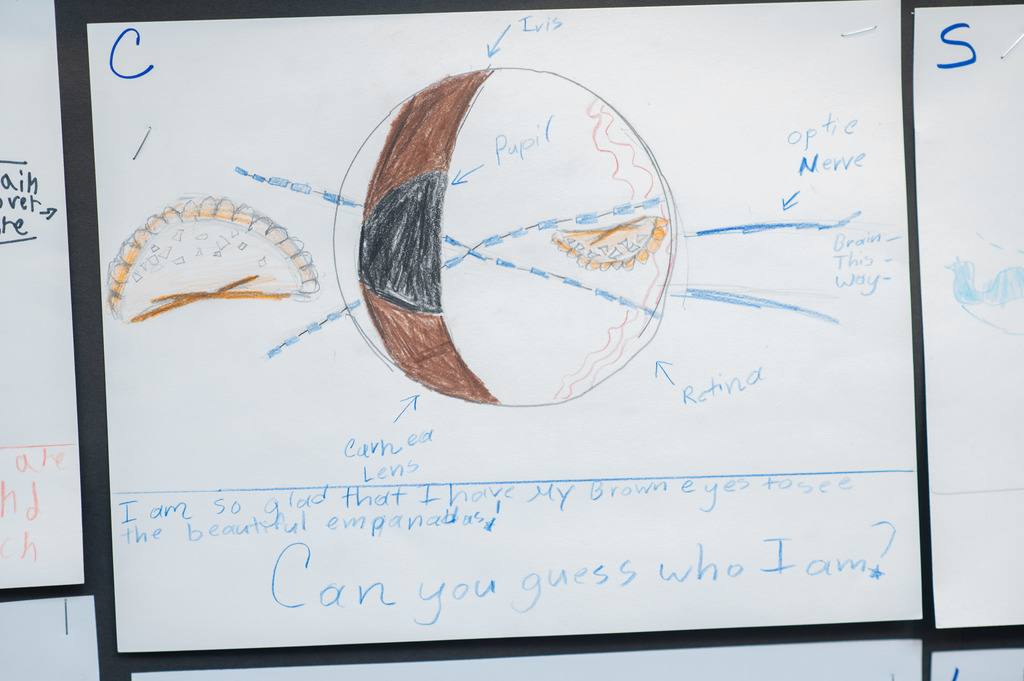 C
S
Iris
Pupil
optic
Nerve
Brain-
This-
Way-
Retina
Carnea
Lens
I am so glad that I have My Brown eyes to see
the beautiful empanadas!
Can you guess who I am?
ain
over→
are
nd
ch